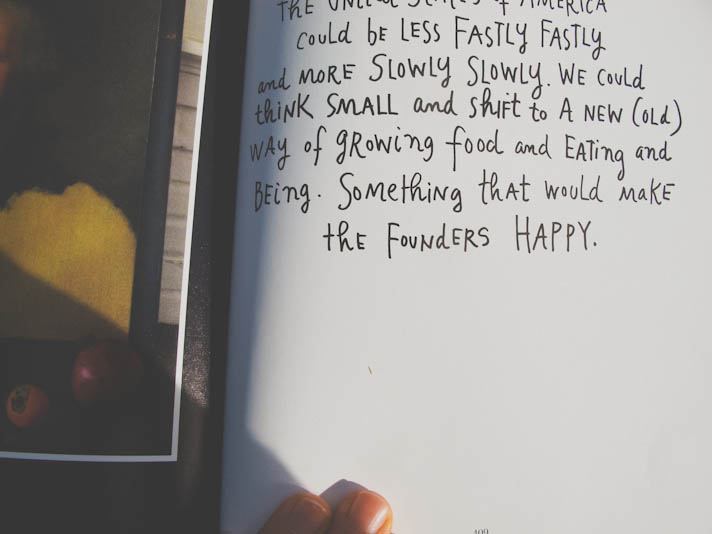 THE UNITED STATES of AMERICA
could bE LESS FASTLY FASTLY
and MORE SLOWLY SLOWLY. WE could
thiNK SMALL and shift to A NEW (old)
WAY of gROWing food and EATing and
BEing. SomEthiNg thAt would MAKE
thE FouNdERS HAPPY.